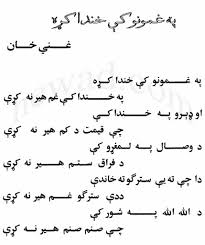 په غمونو کې خندا کړه
غني خان
په غمونو کې خندا کړه
په خندا کې غم هېر نه کړې
او ډوبرو په خندا کې
چې قيمت د کم هېر نه کړې
د وصال په لمغړو کې
د فراق ستم هېر نه کړې
دا چې ته يې سترګو ته خاندې
ددې سترګو غم هېر نه کړې
د الله الله په شور کې
چې صنم صنم هېر نه کړې